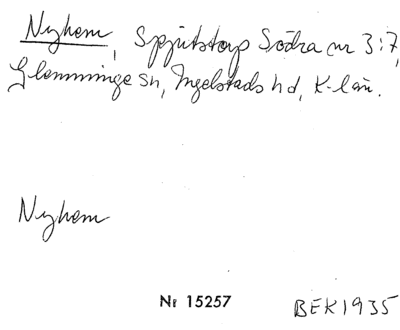 Nyhem, Spjutstorp Södra nr 3:7,
Glemminge sn, Ingelstads hd, K-län.
Nyhem
Nr 15257
BEK1935